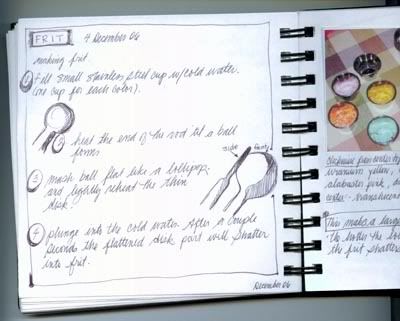 FRIT 4 December 06
making frit.
1 Fill small stainless steel cup w/cold water.
(one cup for each color).
2 heat the end of the rod til a ball
forms
side front
3 mash ball flat like a lollipop
and lightly reheat the thin
disk.
4 plunge into the cold water. After a couple
seconds the flattened disk part will shatter
into frit.
December 06
This makes a large
the hotter the
the frit shatters